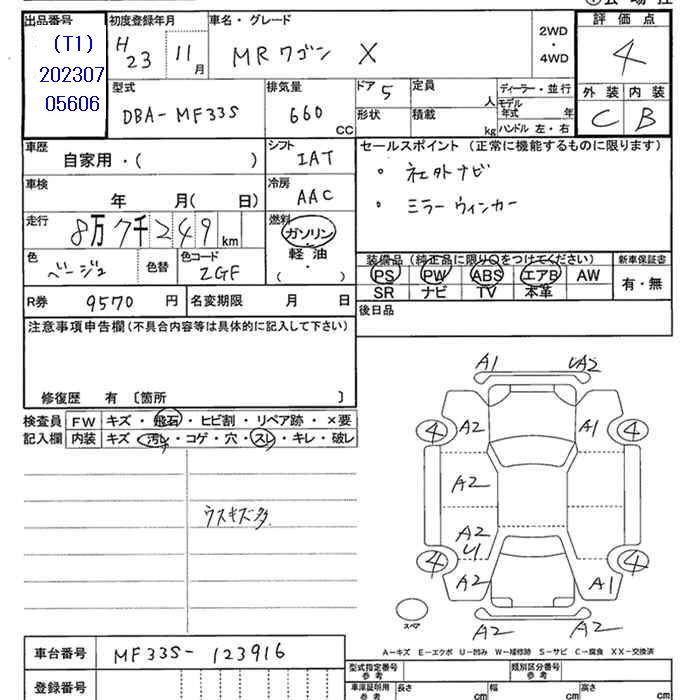 出品番号 初度登録年月 車名・グレード 2WD・4WD 評価点
(T1) H23 11月 MRワゴン X 4
202307
05606
型式 排気量 ドア 5 定員 人 ディーラー・並行 外装 内装
DBA-MF33S 660 CC 形状 積載 kg モデル年式 年 C B
ハンドル 左・右
車歴 シフト セールスポイント (正常に機能するものに限ります)
自家用・( ) IAT
車検 冷房 。社外ナビ
年 月( 日) AAC 。ミラーウィンカー
走行 燃料
8万7千249km ガソリン
軽油
・
( )
色 色替 色コード 装備品(純正品に限り○をつけてください) 新車保証書
ベージュ ZGF PS PW ABS エアB AW 有・無
SR ナビ TV 本革
R券 9570 円 名変期限 月 日 後日品
注意事項申告欄(不具合内容等は具体的に記入して下さい)
修復歴 有 〔箇所 〕
検査員 FW キズ・飛石・ヒビ割・リペア跡・×要
記入欄 内装 キズ・汚レ・コゲ・穴・スレ・キレ・破レ
ウスキズ多
A1 A2
4 A2 A1 4
A2
A2
U
4 A2 A1 4
スペア
A2 A2
A-キズ E-エクボ U-凹み W-補修跡 S-サビ C-腐食 XX-交換済
車台番号 MF33S-123916
型式指定番号 参考 類別区分番号 参考
登録番号 車庫証明用 参考 長さ cm 幅 cm 高さ cm